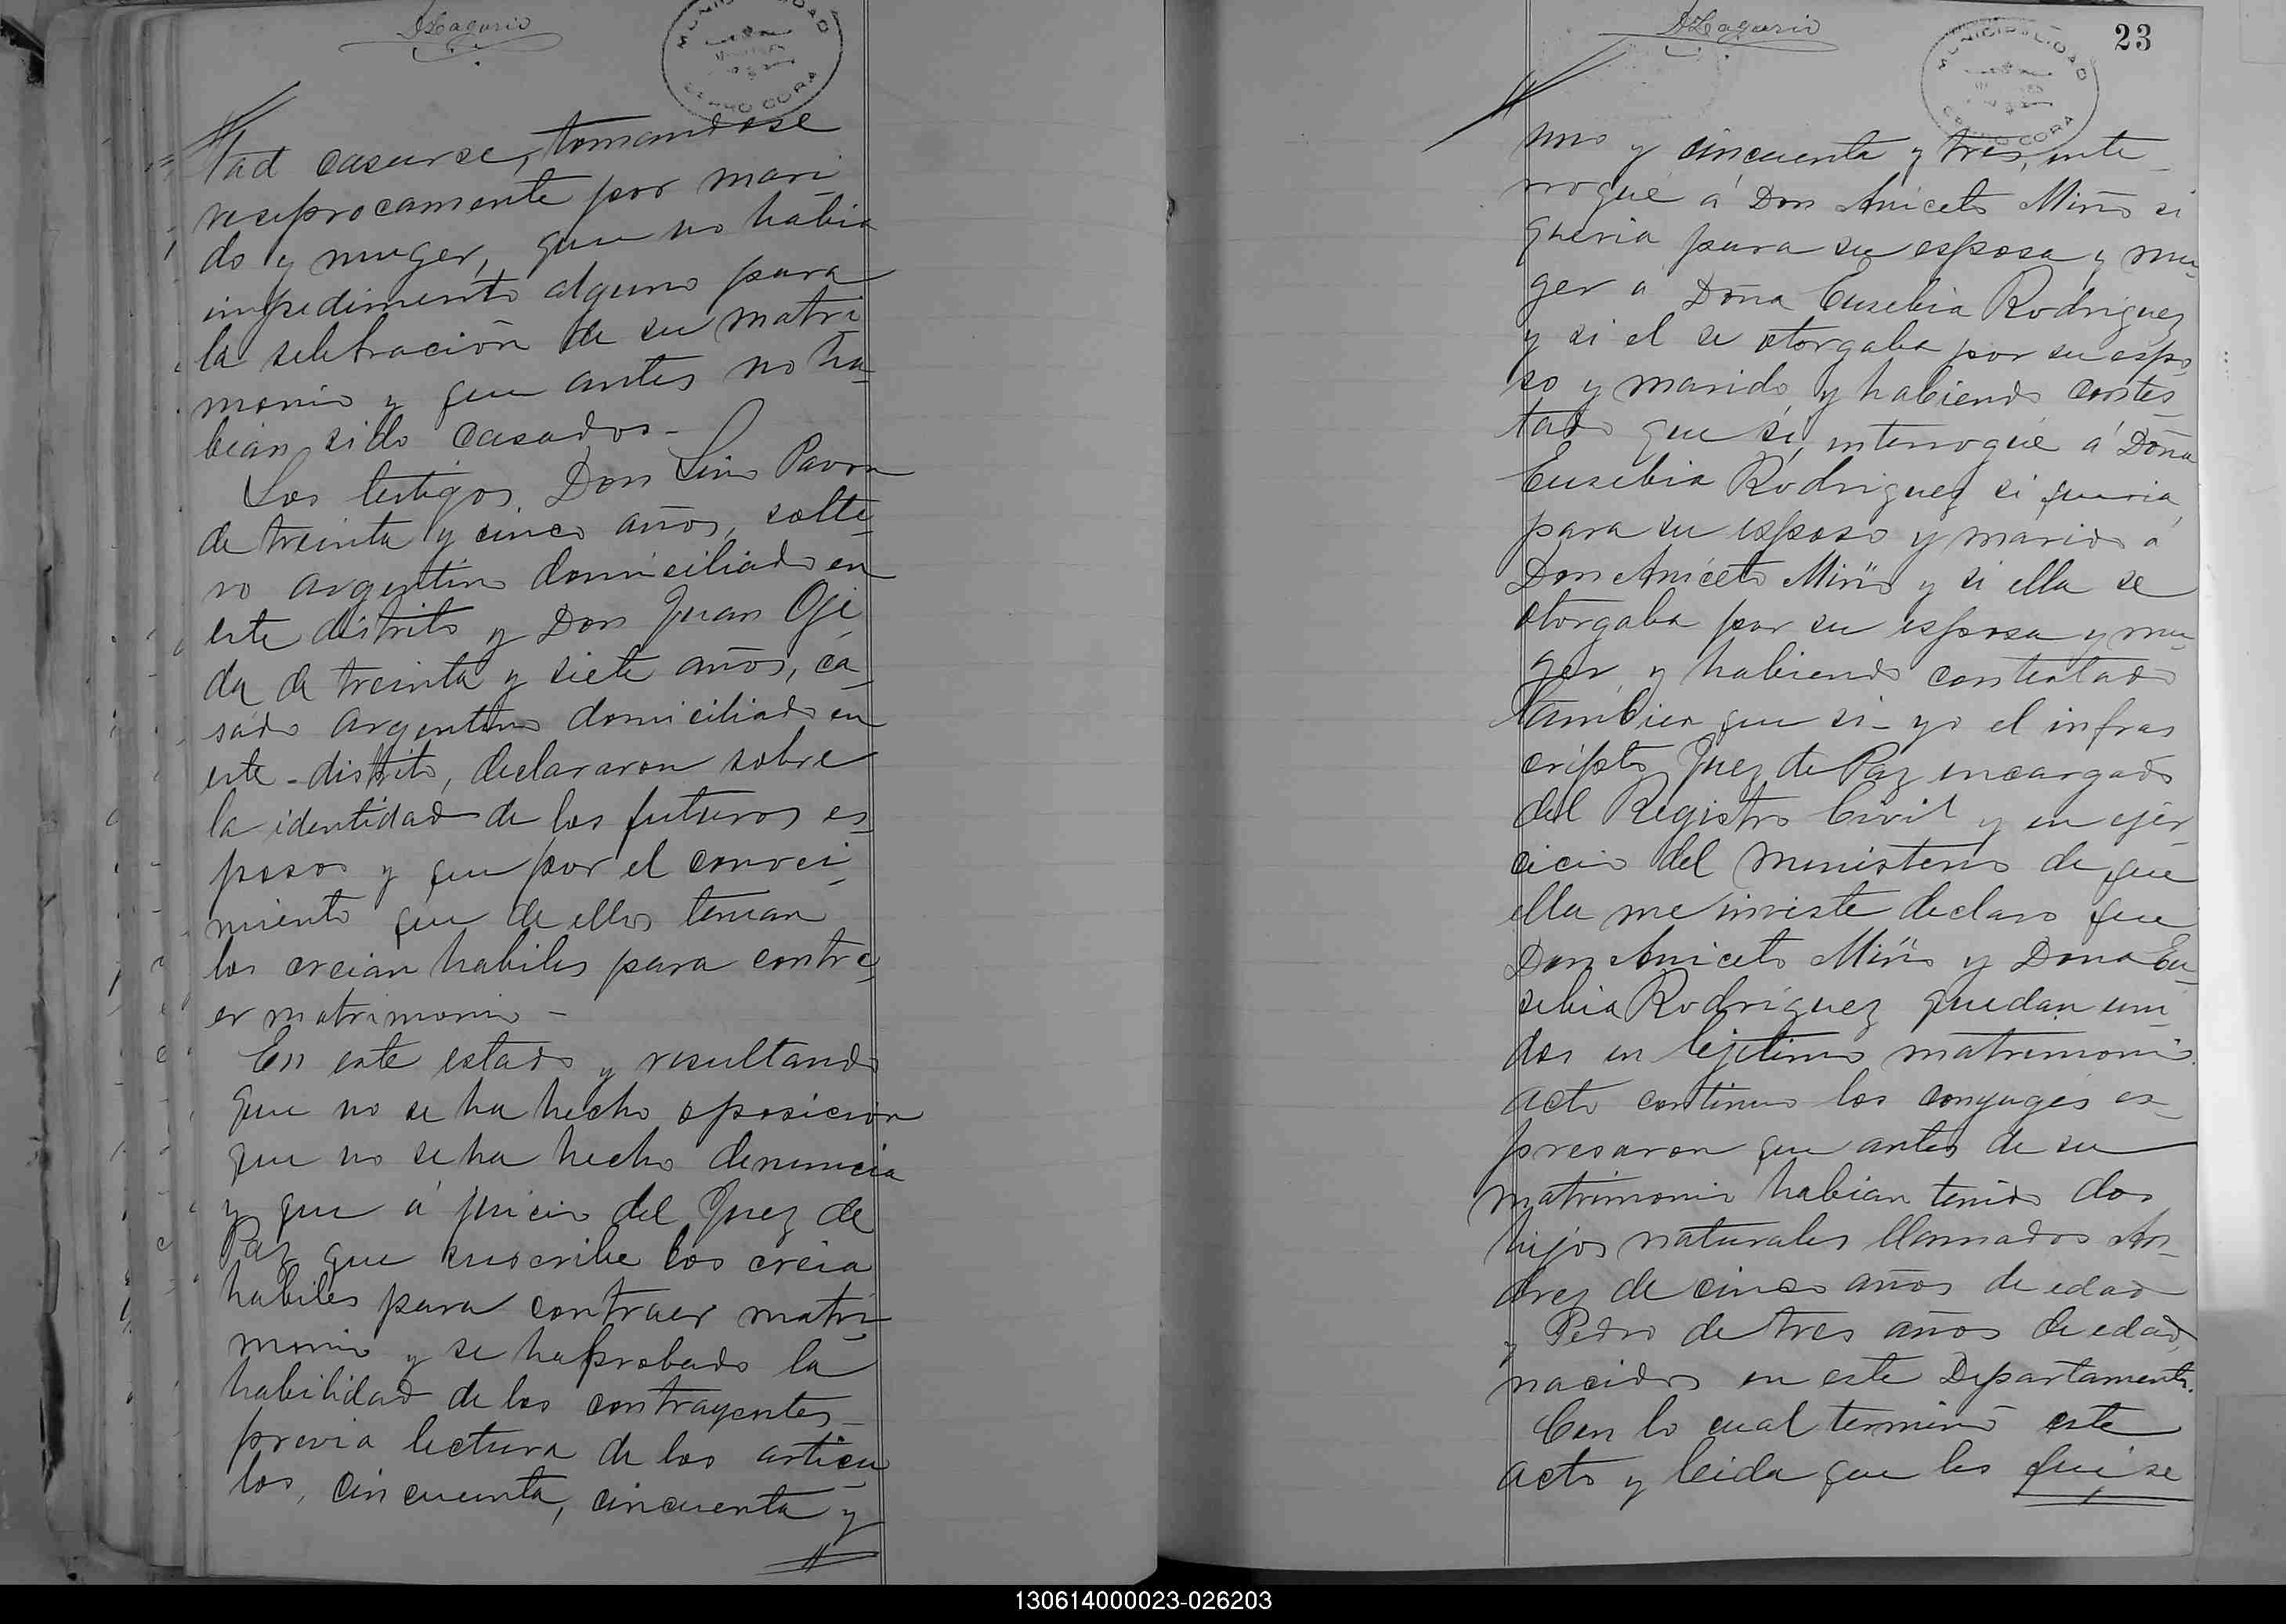 MUNICIPALIDAD
CERRO CORA
tad casarse, tomandose
resiprocamente por mari
do y muger, que no habia
impedimento alguno para
la selebración de su matri
monio y que antes no ha-
bian sido casados-
Los testigos, Don Lino Pavon
de treinta y cinco años, solte-
ro argentino domiciliado en
este distrito y Don Juan Oje
da de treinta y siete años, ca-
sado argentino domiciliado en
este-distrito, declararon sobre
la identidad de los futuros es-
posos y que por el conoci-
miento que de ellos tenian
los creian habiles para contra-
er matrimonio-
En este estado y resultando
que no se ha hecho oposición
que no se ha hecho denuncia
y que á juicio del Juez de
Paz que suscribe los creia
habiles para contraer matri-
monio y se ha probado la
habilidad de los contrayentes-
previa lectura de los articu
los, cincuenta, cincuenta y
MUNICIPALIDAD
CERRO CORA
23
uno y cincuenta y tres, inte-
rrogué á Don Aniceto Miño si
queria para su esposa y mu-
ger a Doña Eusebia Rodriguez
y si el se otorgaba por su espo
so y marido y habiendo contes-
tado que si, interrogué á Doña
Eusebia Rodriguez si queria
para su esposo y marido á
Don Aniceto Miño y si ella se
otorgaba por su esposa y mu-
ger, y habiendo contestado
tambien que si- yo el infras
cripto Juez de Paz encargado
del Registro Civil y en ejer
cicio del ministerio de que
ella me inviste declaro que
Don Aniceto Miño y Dona Eu-
sebia Rodriguez quedan uni-
dos en lejitimo matrimonio.
Acto continuo los conyuges es-
presaron que antes de su
matrimonio habian tenido dos
hijos naturales llamados An-
drez de cinco años de edad
y Pedro de tres años de edad,
nacidos en este Departamento.
Con lo cual terminó este
acto y leida que les fué se
130614000023-026203